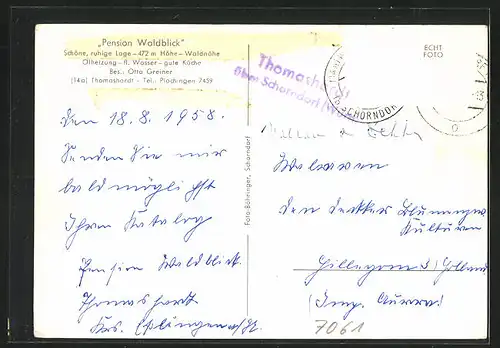 „Pension Waldblick"
Schöne, ruhige Lage — 472 m Höhe — Waldnähe
Ölheizung — fl. Wasser — gute Küche
Bes.: Otto Greiner
(14a) Thomashardt - Tel.: Plochingen 7459
ECHT-
FOTO
Thomashardt
über Schorndorf
SCHORNDORF
den 18.8.1958.
Senden Sie mir
bald möglichst
Ihren Katalog
Pension Waldblick.
Thomashardt
Krs. Esslingen a/N.
Foto-Böhringer, Schorndorf
den
Blumenzw.
Kulturen
Hillegom Holland
7061